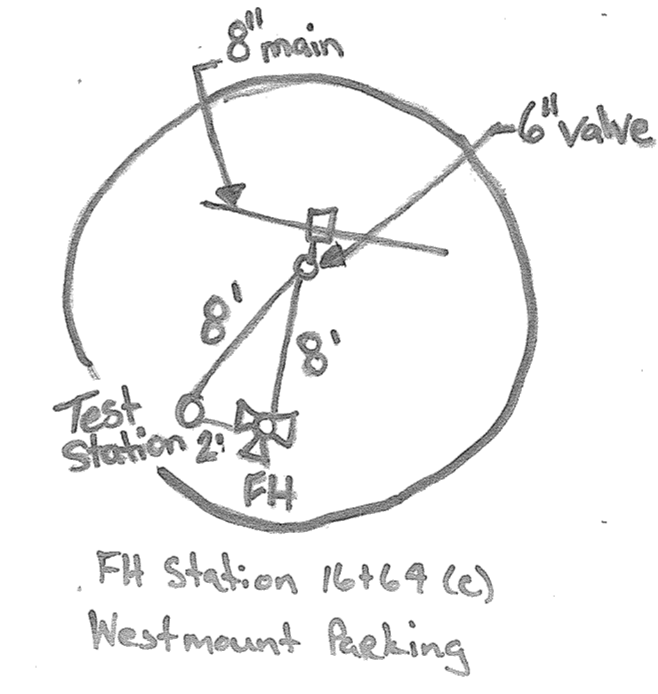 8" main
6" valve
8'
8'
Test
Station
2'
FH
FH Station 16+64 (c)
Westmount Parking